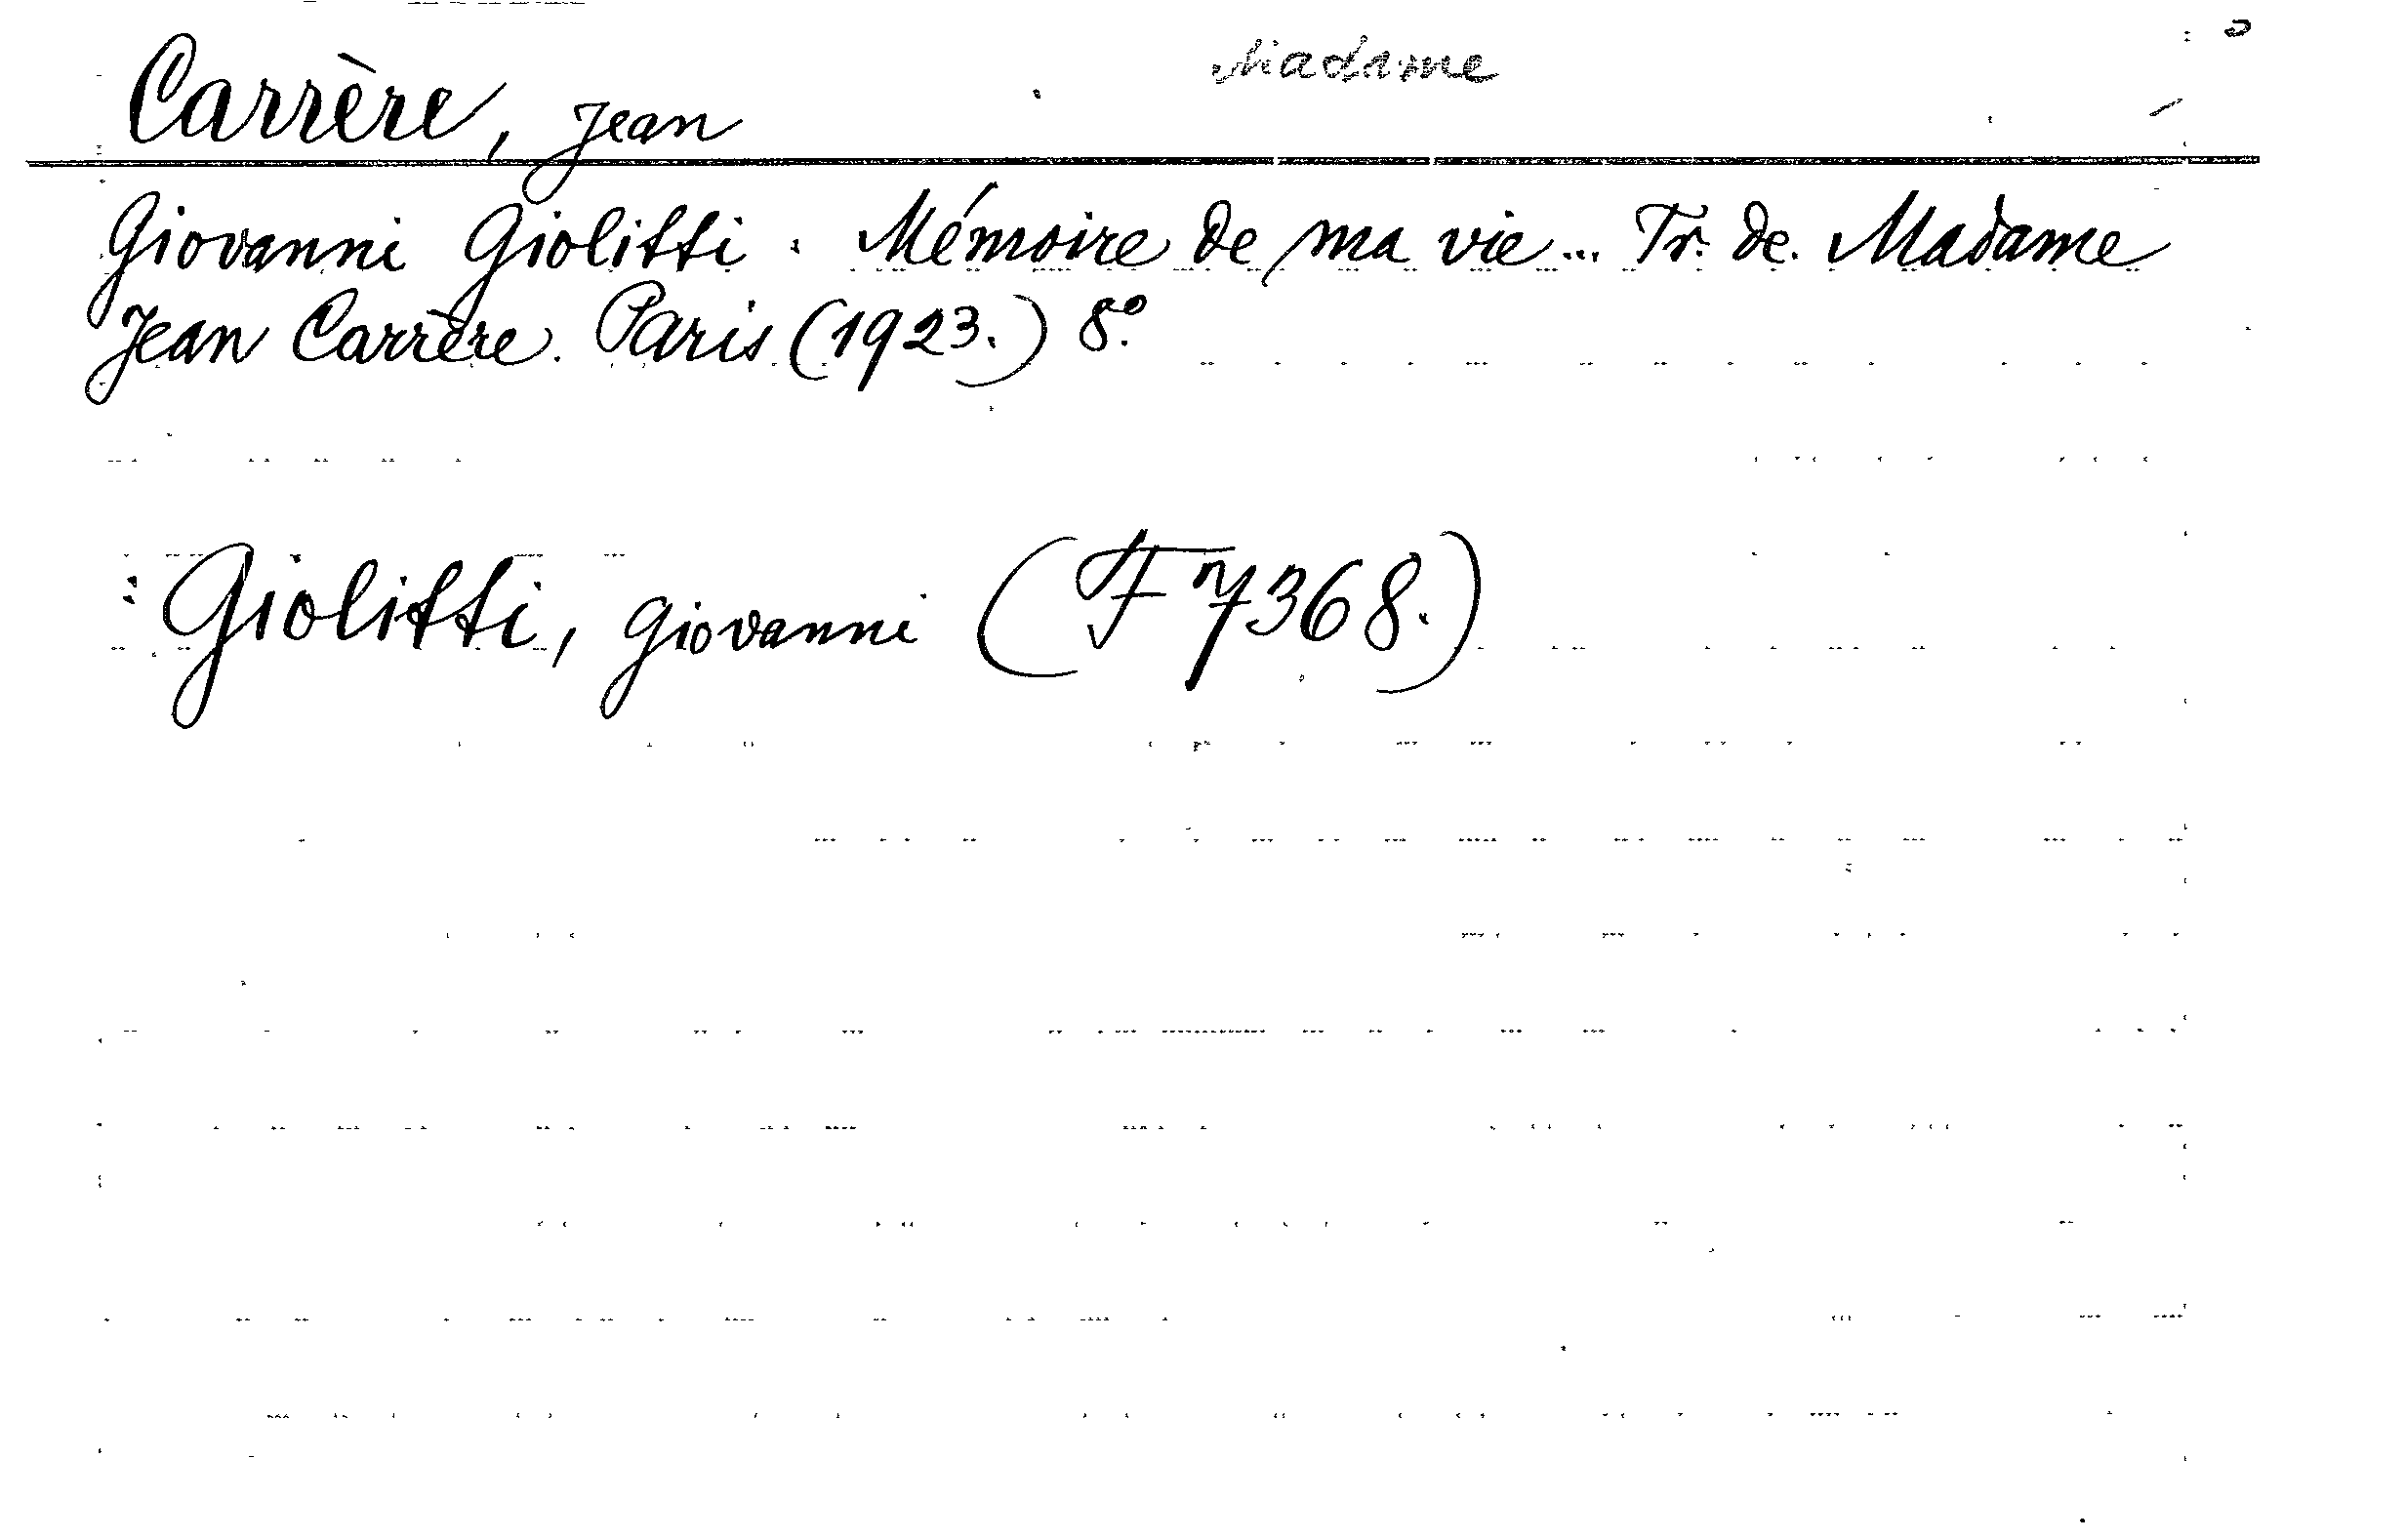 Carrère, Jean Madame
Giovanni Giolitti : Mémoire de ma vie... Tr. de. Madame
Jean Carrère. Paris (1923.) 8°.
: Giolitti, Giovanni (F 7368.)